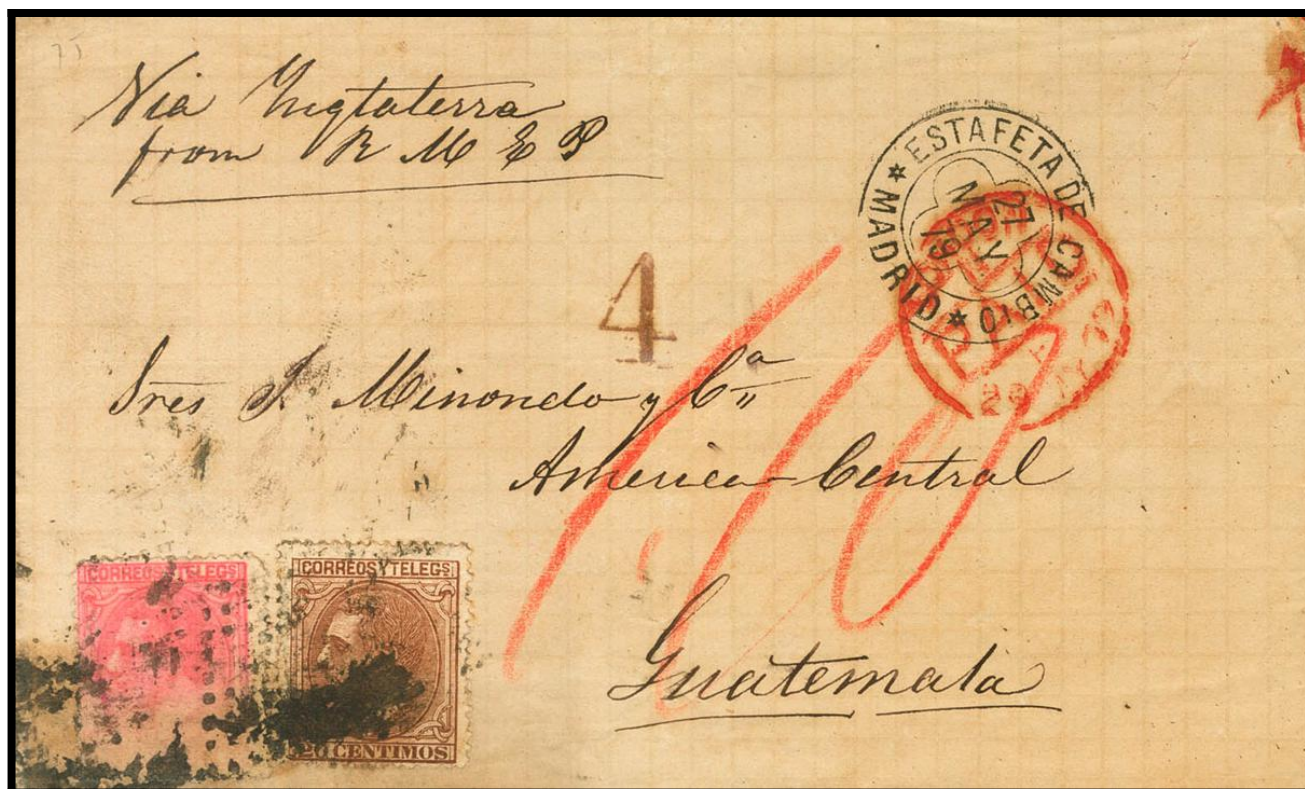 75
Via Ingtaterra
from R M E P
ESTAFETA DE CAMBIO
MADRID
27
MAY
79
4
1,10
Sres J. Minondo y Cª
America-Central
Guatemala
CORREOS Y TELEGS
CORREOS Y TELEGS
20 CENTIMOS
LONDON
PAID
29 MY 79